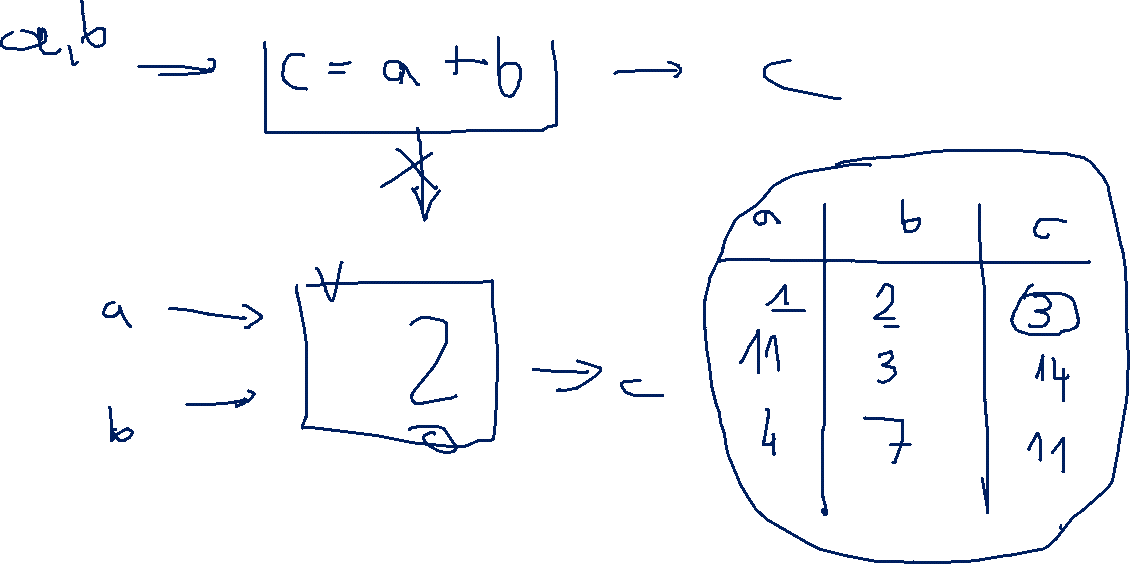 a,b → c = a + b → c
a → 2 → c
b
a b c
1 2 3
11 3 14
4 7 11